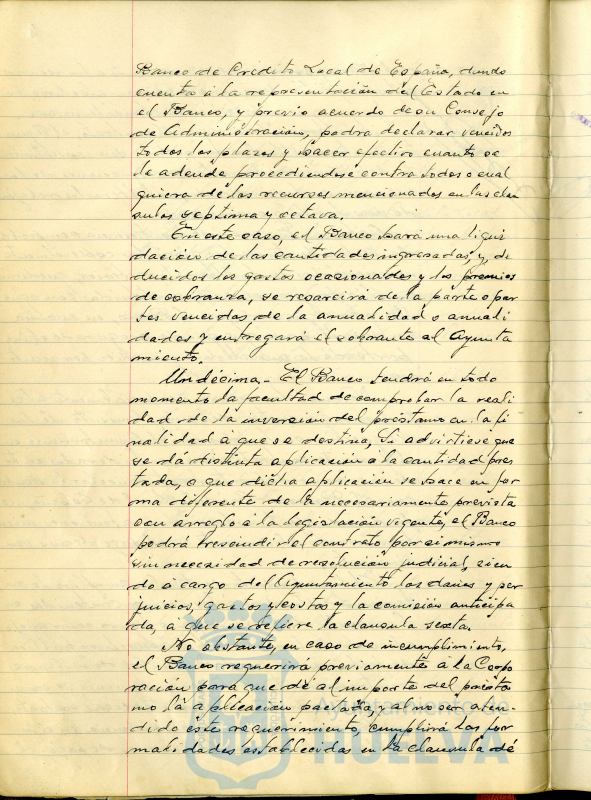 Banco de Crédito Local de España, dando
cuenta á la representación del Estado en
el Banco, y previo acuerdo de su Consejo
de Administración, podra declarar vencidos
todos los plazos y hacer efectivo cuanto se
le adeude procediendose contra todos o cual
quiera de los recursos mencionados en las clau
sulas septima y octava.
En este caso, el Banco hará una liqui
dación de las cantidades ingresadas, y, de
ducidos los gastos ocasionados y los premios
de cobranza, se resarcirá de la parte o par
tes vencidas de la anualidad o anuali
dades y entregará el sobrante al Ayunta
miento.
Undécima.- El Banco tendrá en todo
momento la facultad de comprobar la reali
dad de la inversión del préstamo en la fi
nalidad á que se destina, Si advirtiese que
se dá distinta aplicación á la cantidad pres
tada, o que dicha aplicación se hace en for
ma diferente de la necesariamente prevista
con arreglo á la legislación vigente, el Banco
podrá rescindir el contrato por si mismo
sin necesidad de resolución judicial, sien
do á cargo del Ayuntamiento los daños y per
juicios, gastos y costas y la comisión anticipa
da, á que se refiere la clausula sexta.
No obstante, en caso de incumplimiento,
el Banco requerirá previamente a la Corpo
ración para que dé al importe del présta
mo la aplicación pactada, y al no ser aten-
dido este requerimiento, cumplirá las for
malidades establecidas en la clausula dé
HUELVA